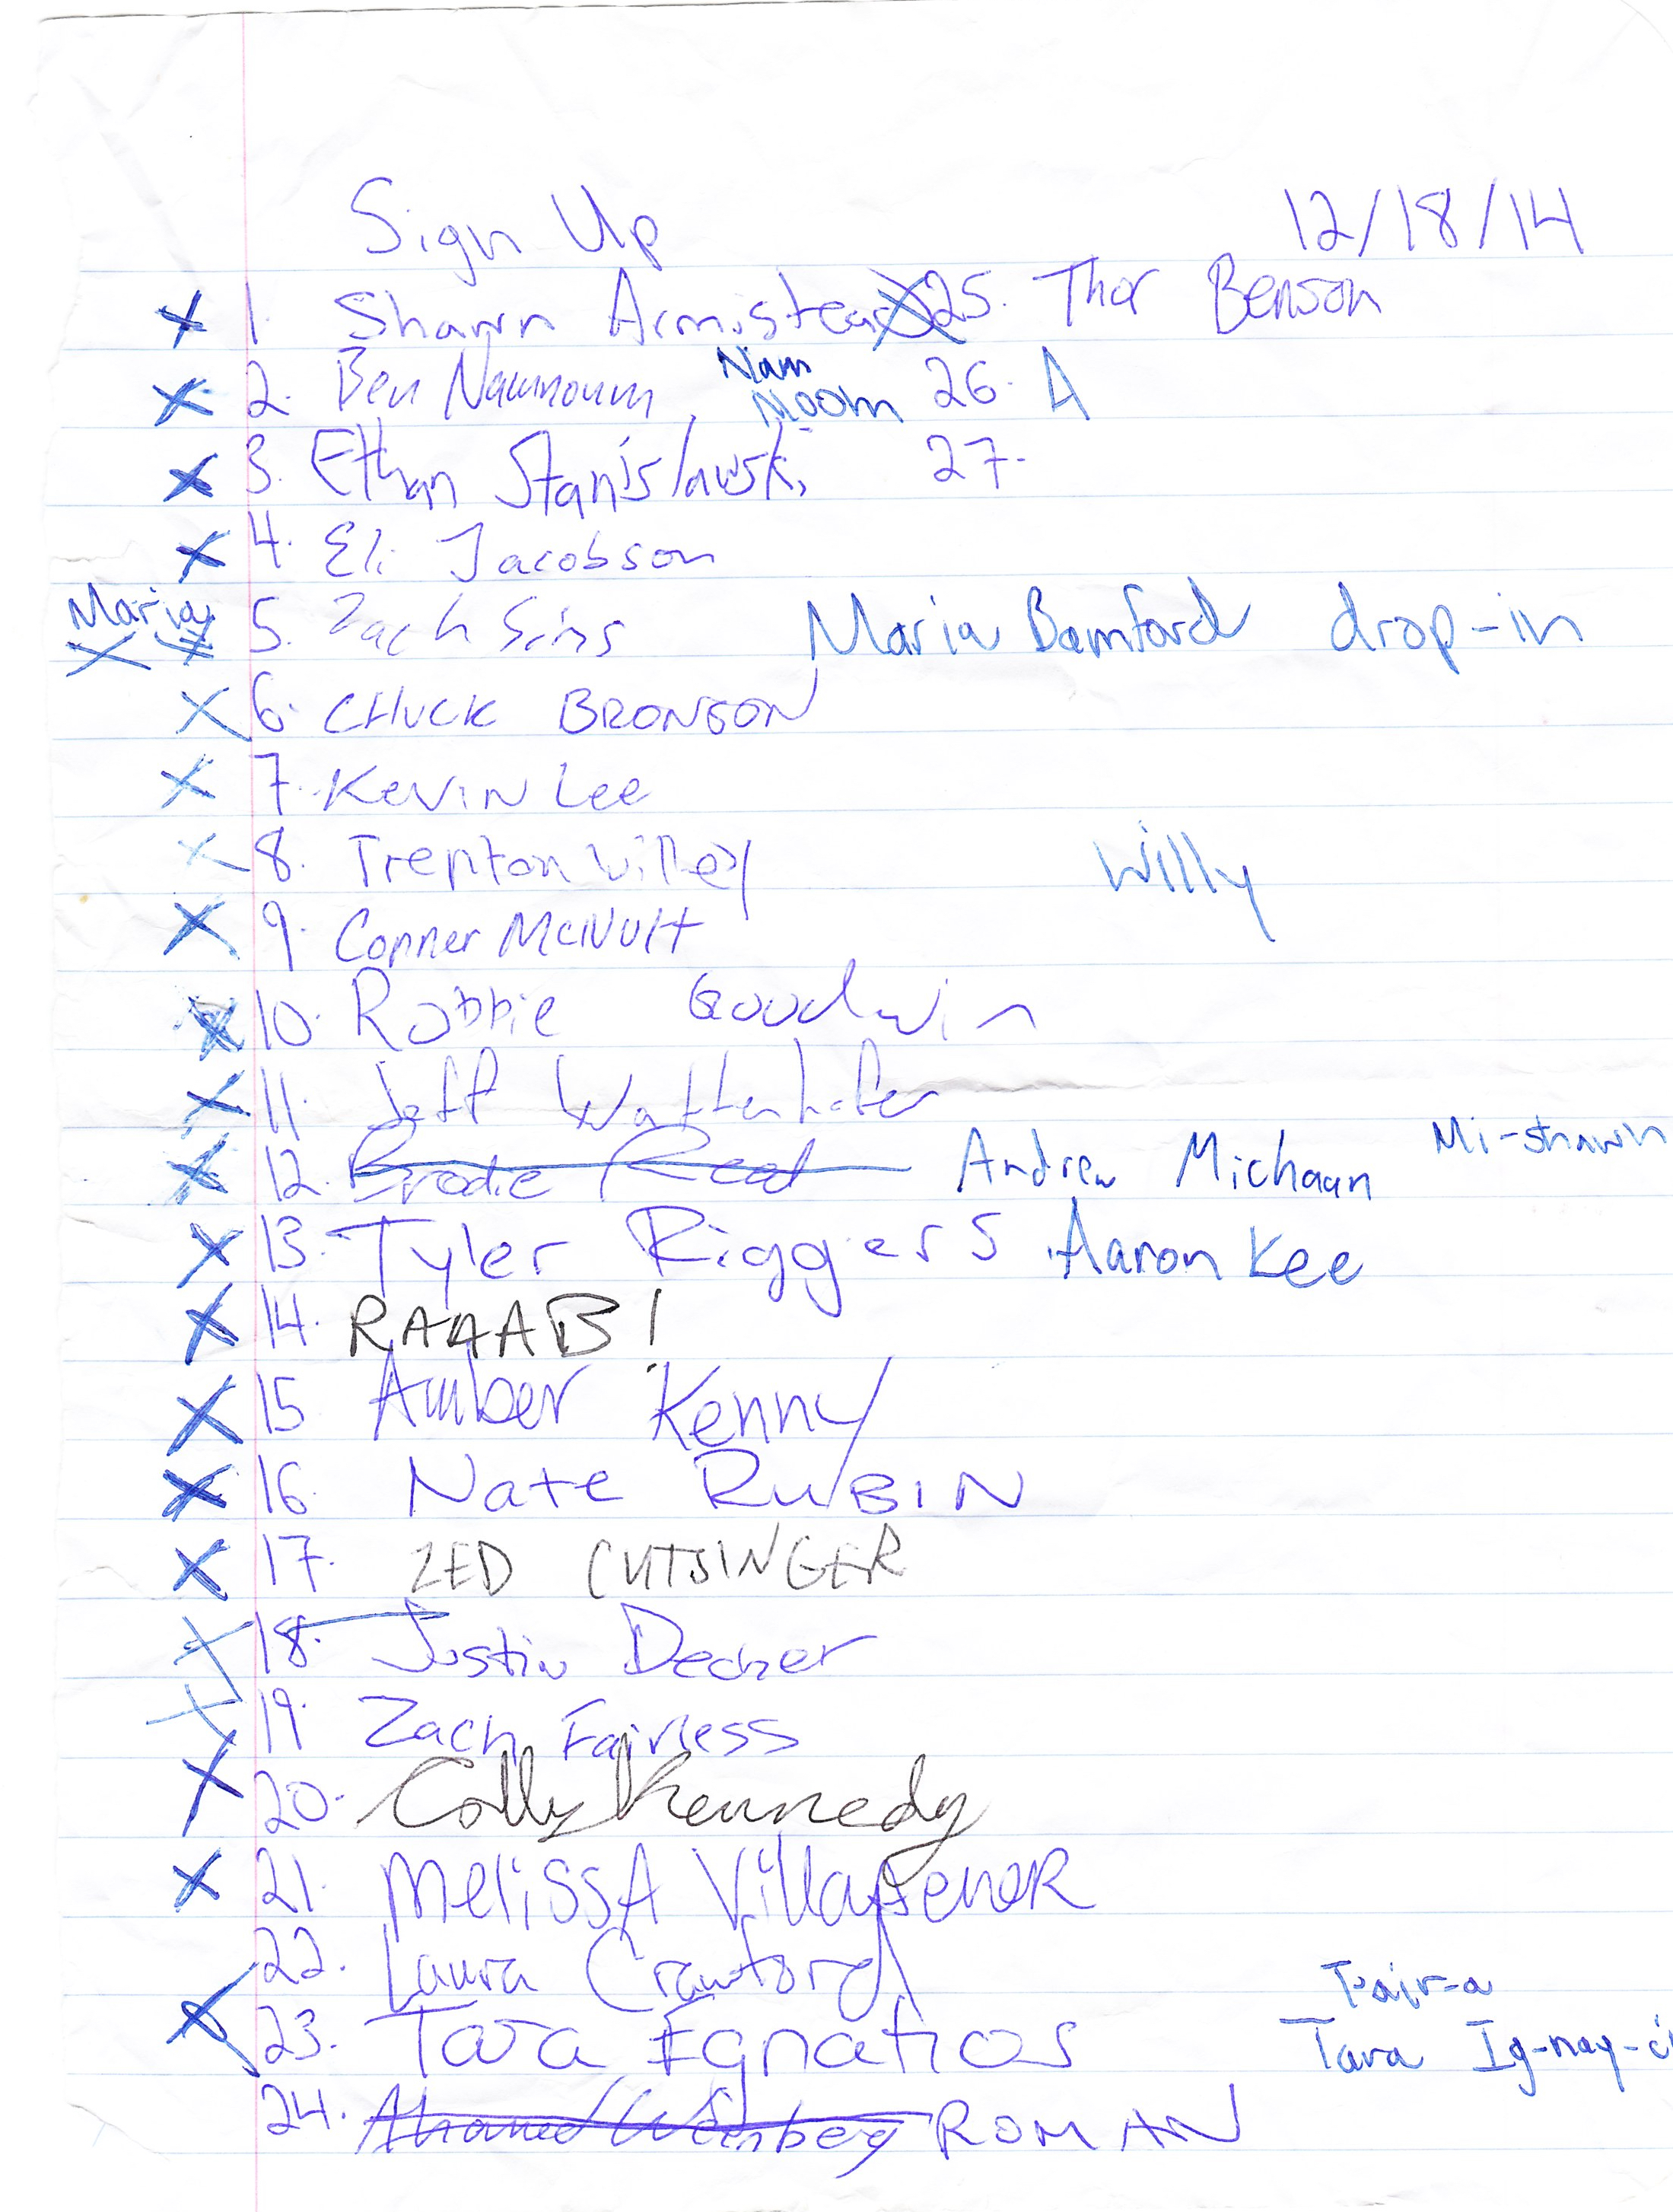 Sign Up 12/18/14
X 1. Shawn Armistead X 25. Thor Benson
X 2. Ben Naumoum, Nam Noom 26. A
X 3. Ethan Stanislawski 27.
X 4. Eli Jacobson
Maria X X 5. Zach Sims Maria Bamford drop-in
X 6. CHUCK BRONSON
X 7. Kevin Lee
X 8. Trenton Willey Willy
X 9. Conner McNutt
X 10. Robbie Goodwin
X 11. Jeff Wattenhofer
X 12. Brodie Reed Andrew Michaan Mi-shawn
X 13. Tyler Riggers Aaron Kee
X 14. RAAAB!
X 15. Amber Kenny
X 16. Nate RUBIN
X 17. ZED CUTSINGER
X 18. Justin Decker
X 19. Zach Fairless
X 20. Kennedy
X 21. Melissa Villaseñor
22. Laura Crawford
X 23. Tara Ignatios Tair-a
Tara Ig-nay-ci
24. Ahamed Weinberg ROMAN